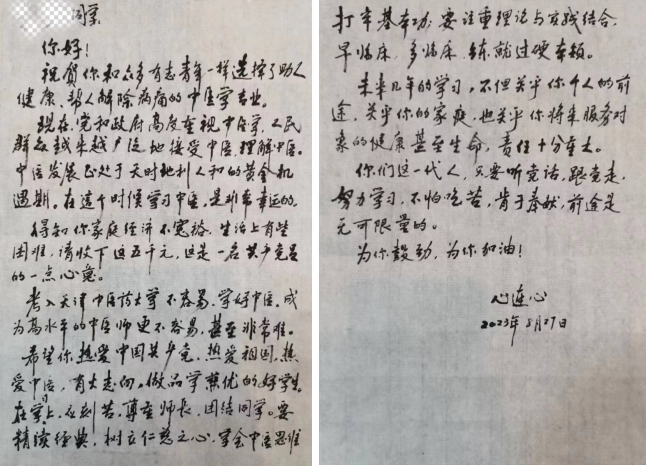 同学
你好！
祝贺你和众多有志青年一样选择了助人
健康、帮人解除病痛的中医学专业。
现在，党和政府高度重视中医学，人民
群众越来越广泛地接受中医，理解中医。
中医发展正处于天时地利人和的黄金机
遇期，在这个时候学习中医，是非常幸运的。
得知你家庭经济不宽裕，生活上有些
困难，请收下这五千元，这是一名共产党员
的一点心意。
考入天津中医药大学不容易，学好中医，成
为高水平的中医师更不容易，甚至非常难。
希望你热爱中国共产党，热爱祖国，热
爱中医，有大志向，做品学兼优的好学生。
在学习上，在刻苦，尊重师长，团结同学。要
精读经典，树立仁慈之心，学会中医思维
打牢基本功，要注重理论与实践结合，
早临床，多临床，练就过硬本领。
未来几年的学习，不但关乎你个人的前
途，关乎你的家庭，也关乎你将来服务对
象的健康甚至生命，责任十分重大。
你们这一代人，只要听党话，跟党走，
努力学习，不怕吃苦，肯于奉献，前途是
无可限量的。
为你鼓劲，为你加油！
心连心
2023年8月27日